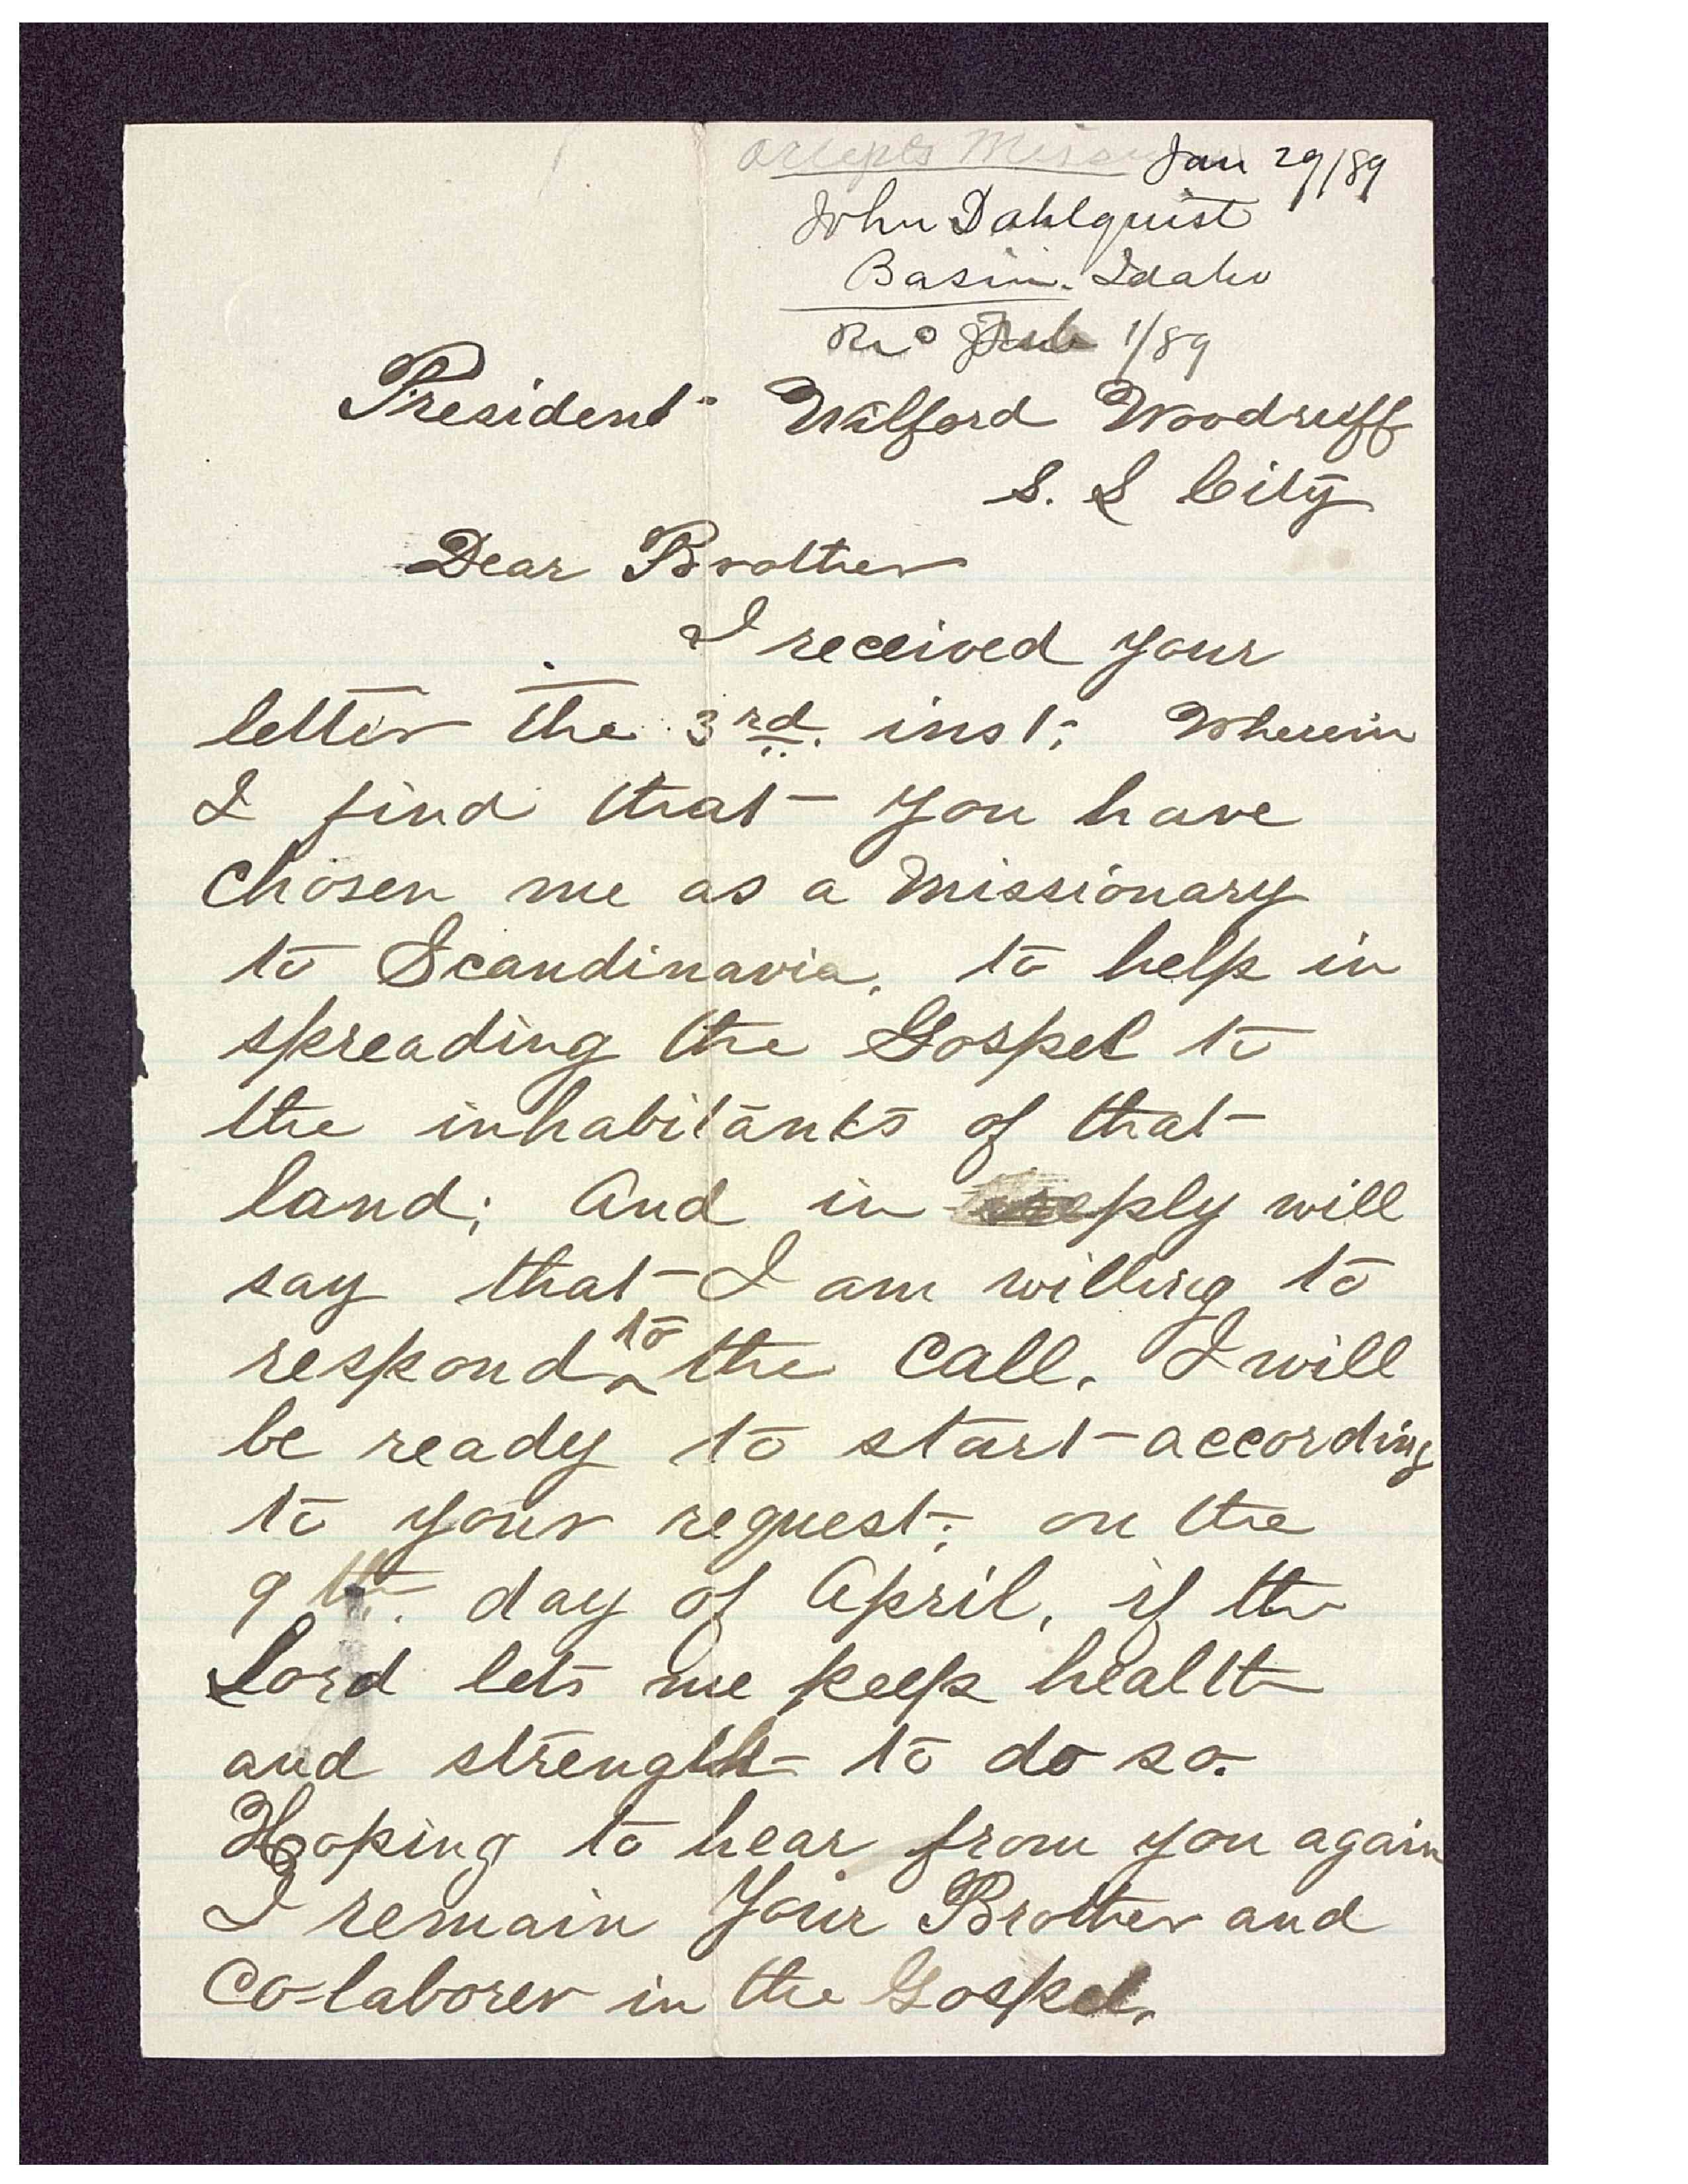 accepts Mission Jan 29/89
John Dahlquist
Basin. Idaho
Rec Feb 1/89
President Wilford Woodruff
S. L City
Dear Brother
I received your
letter the 3rd. inst; Wherein
I find that you have
chosen me as a missionary
to Scandinavia, to help in
spreading the Gospel to
the inhabitants of that
land; and in reply will
say that I am willing to
respond to the call. I will
be ready to start according
to your request; on the
9th. day of April, if the
Lord lets me keep health
and strength to do so.
Hoping to hear from you again
I remain Your Brother and
Co-laborer in the Gospel.